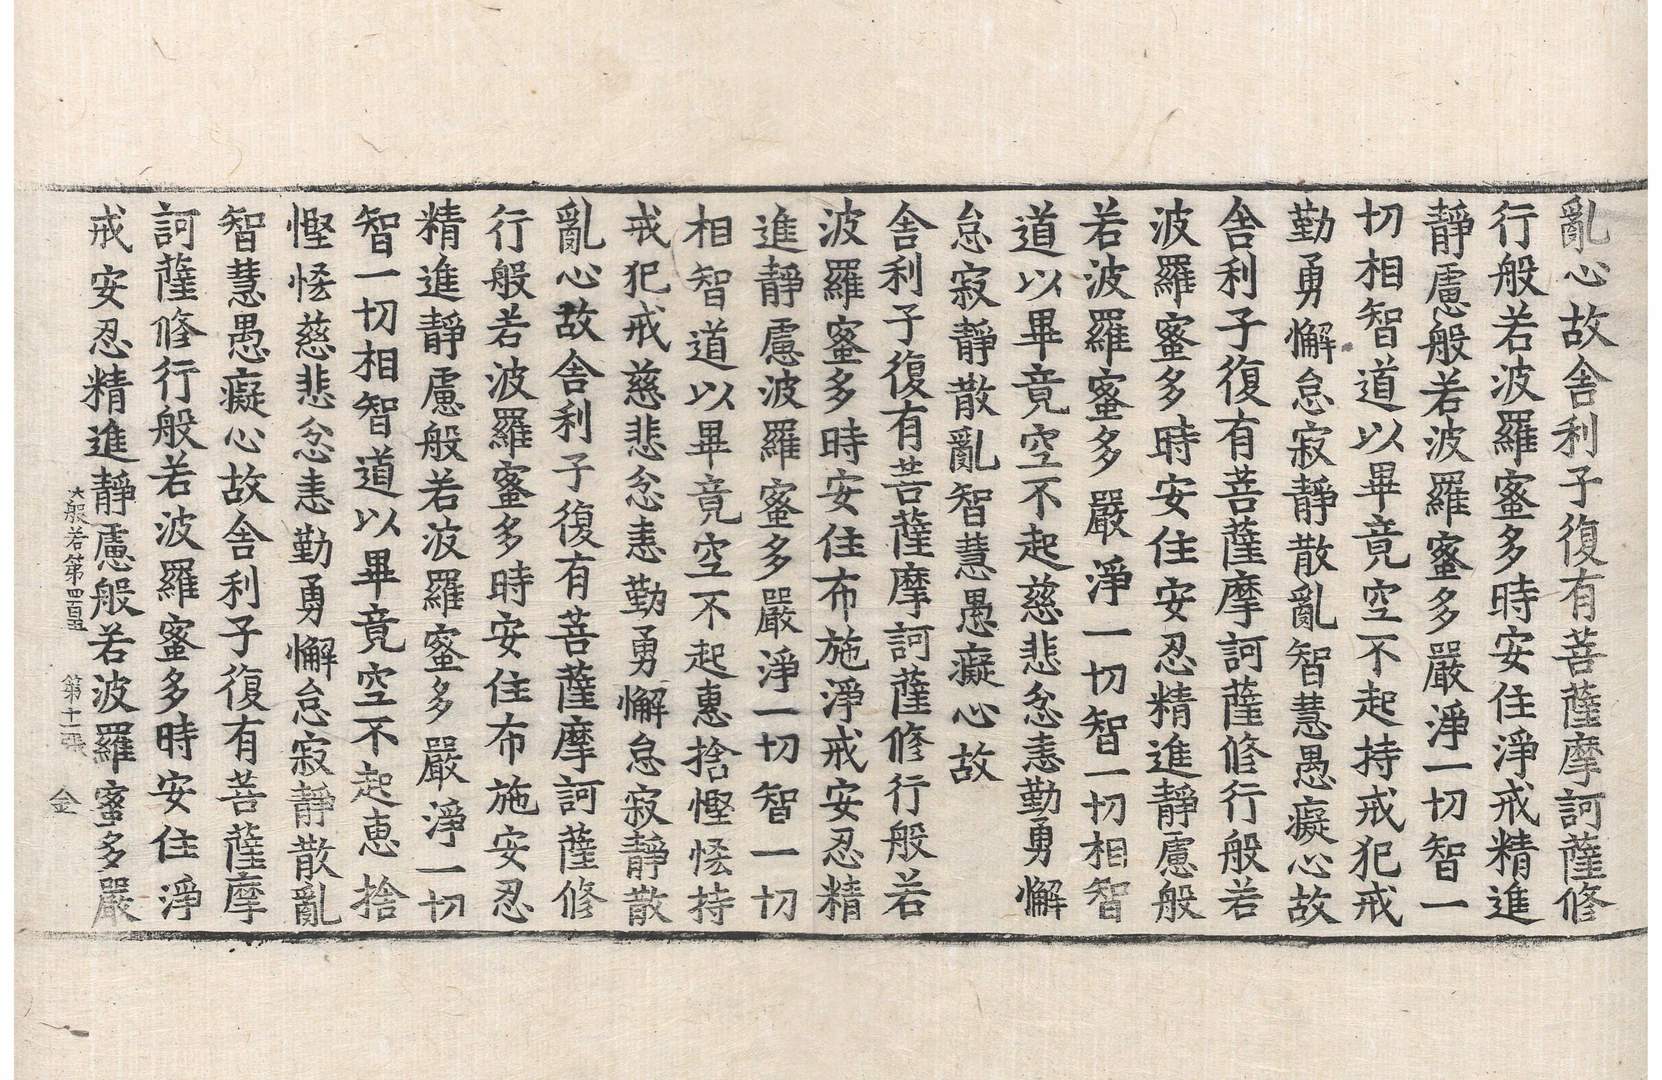 亂心故舍利子復有菩薩摩訶薩修
行般若波羅蜜多時安住淨戒精進
靜慮般若波羅蜜多嚴淨一切智一
切相智道以畢竟空不起持戒犯戒
勤勇懈怠寂靜散亂智慧愚癡心故
舍利子復有菩薩摩訶薩修行般若
波羅蜜多時安住安忍精進靜慮般
若波羅蜜多嚴淨一切智一切相智
道以畢竟空不起慈悲忿恚勤勇懈
怠寂靜散亂智慧愚癡心故
舍利子復有菩薩摩訶薩修行般若
波羅蜜多時安住布施淨戒安忍精
進靜慮波羅蜜多嚴淨一切智一切
相智道以畢竟空不起惠捨慳悋持
戒犯戒慈悲忿恚勤勇懈怠寂靜散
亂心故舍利子復有菩薩摩訶薩修
行般若波羅蜜多時安住布施安忍
精進靜慮般若波羅蜜多嚴淨一切
智一切相智道以畢竟空不起惠捨
慳悋慈悲忿恚勤勇懈怠寂靜散亂
智慧愚癡心故舍利子復有菩薩摩
訶薩修行般若波羅蜜多時安住淨
戒安忍精進靜慮般若波羅蜜多嚴
大般若第四百 第十二張 金